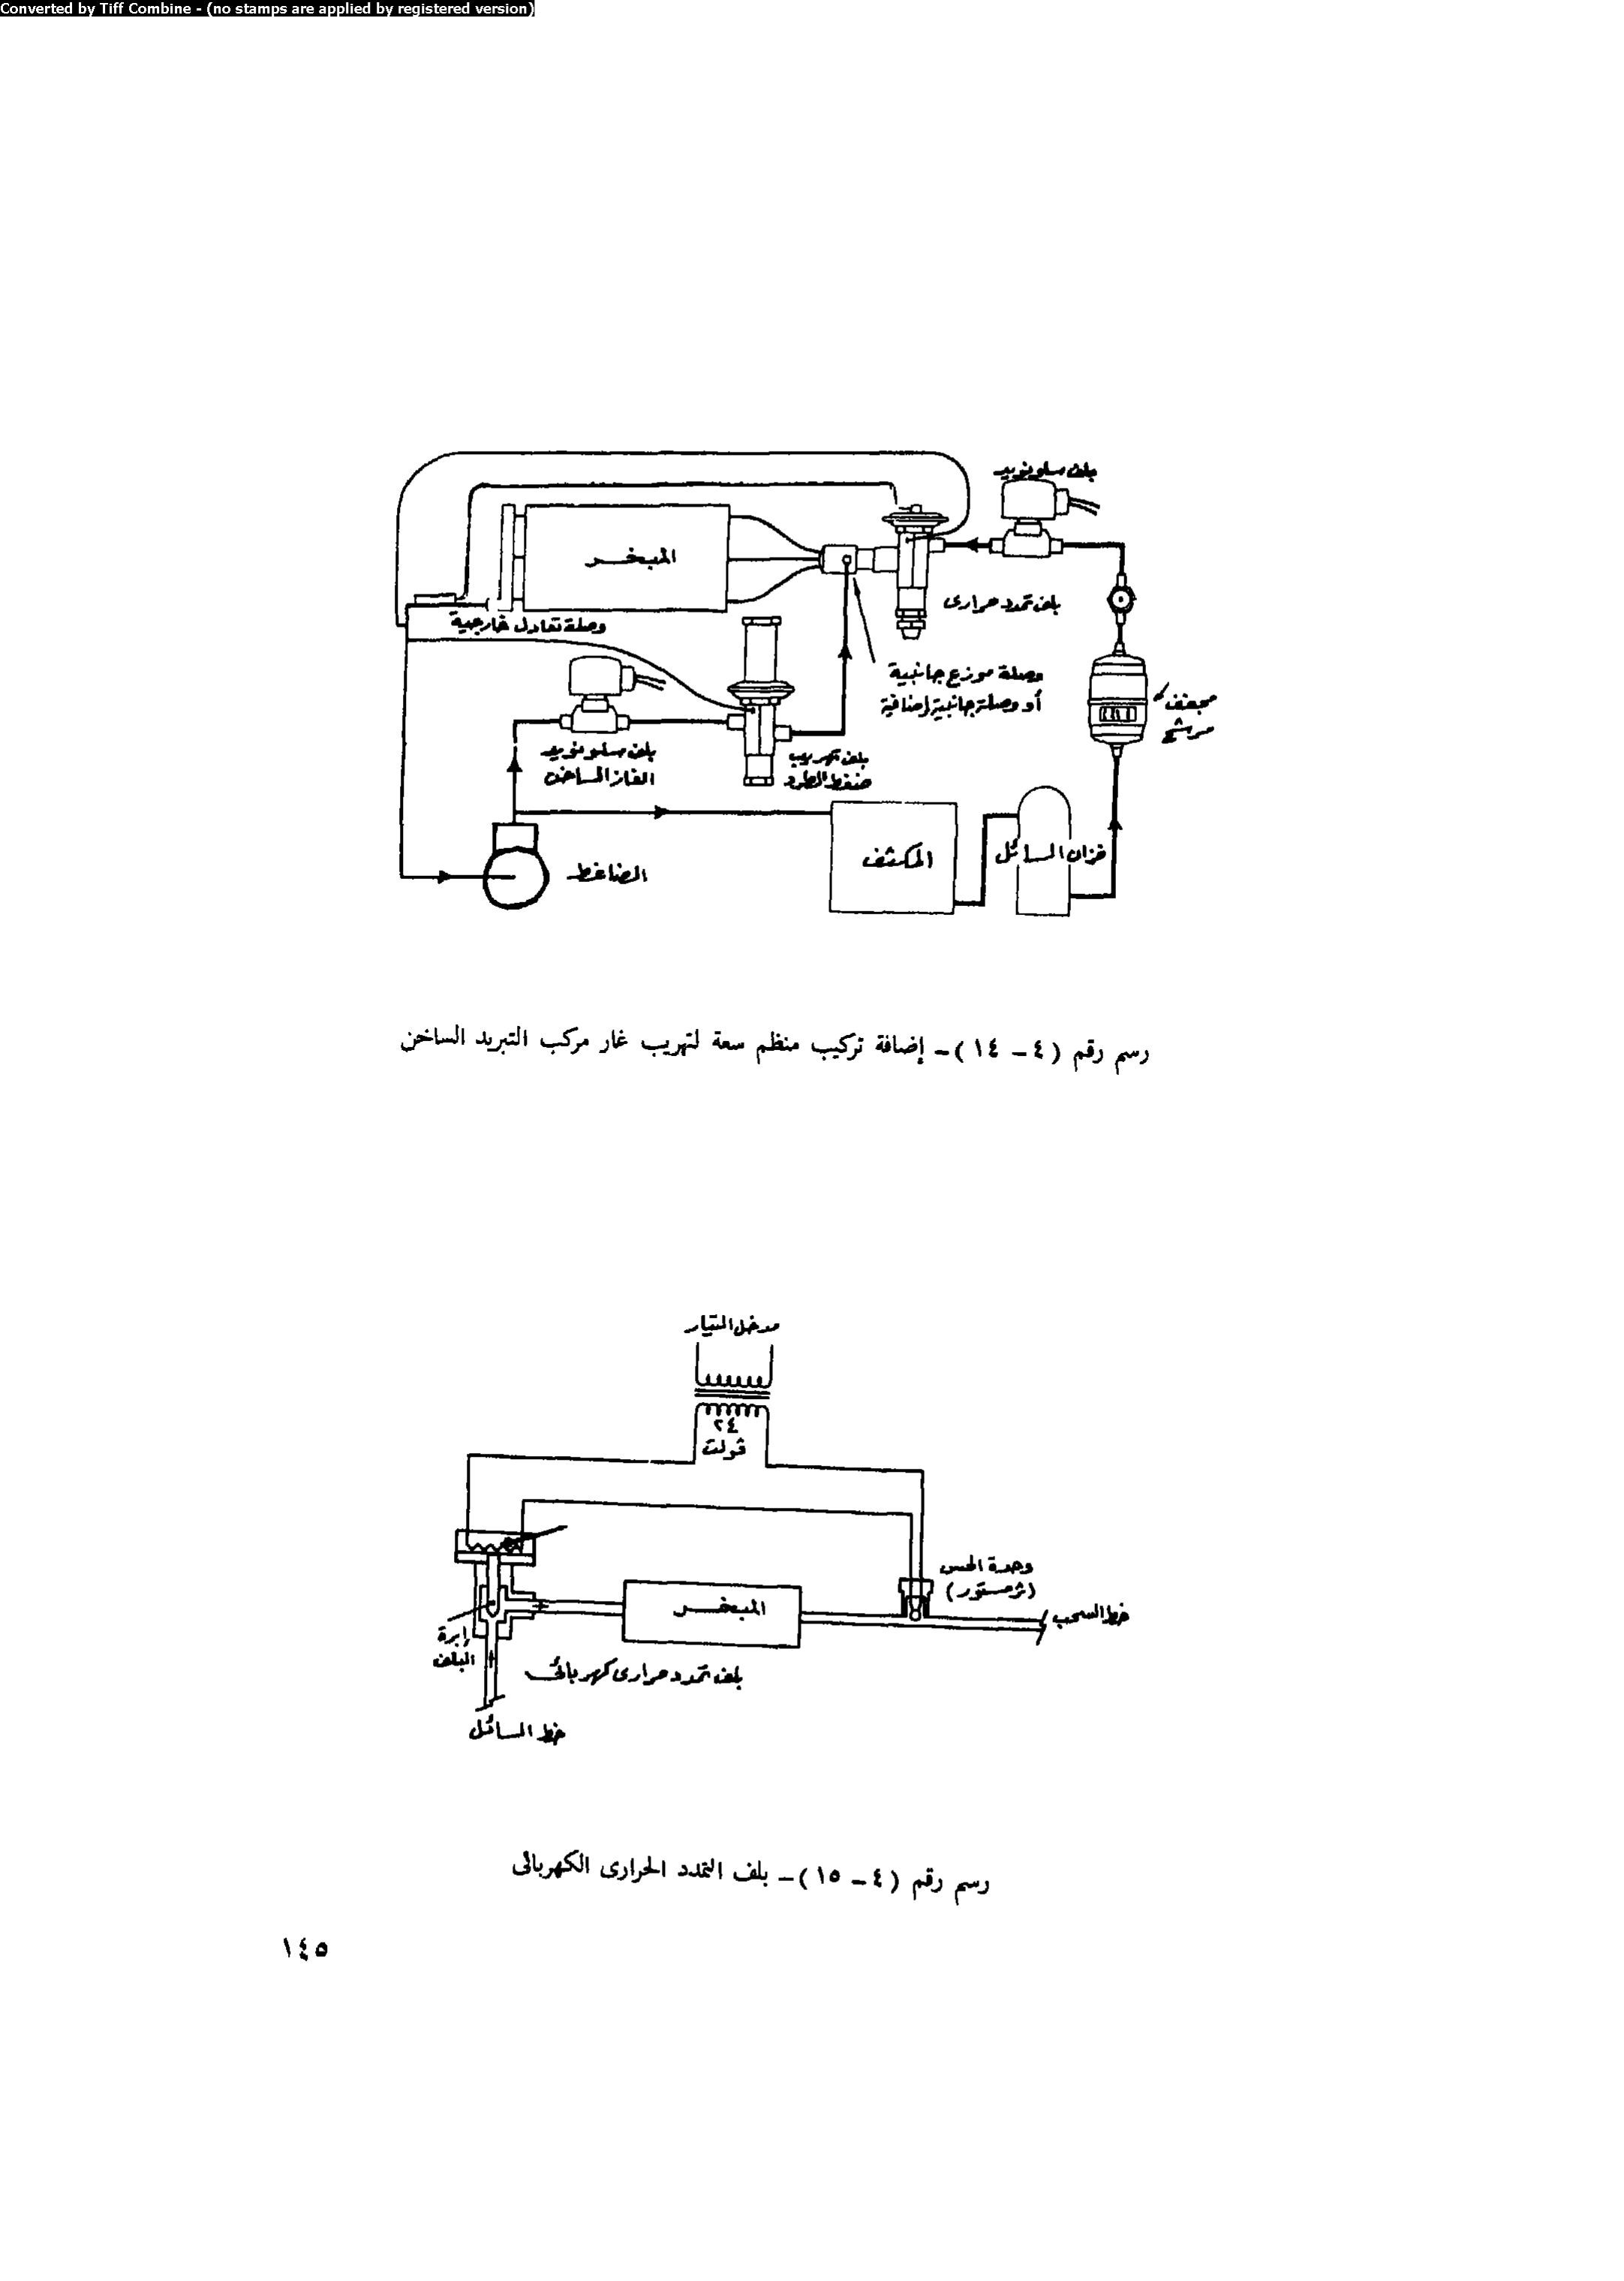 Converted by Tiff Combine - (no stamps are applied by registered version)
بلف سلونويد
المبخر
بلف تمدد حرارى
وصلة تعادل خارجية
وصلة موزع جانبية
أو وصلة جانبية إضافية
مجفف
مرشح
بلف سلونويد
الغاز الساخن
بلف تهريب
ضغط الطرد
المكثف
خزان السائل
الضاغط
رسم رقم ( ٤ - ١٤ ) - إضافة تركيب منظم سعة لتهريب غار مركب التبريد الساخن
مدخل التيار
٢٤
ڤولت
وحدة الحس
(ثرمستور)
المبخر
خط السحب
إبرة
البلف
بلف تمدد حرارى كهربائى
خط السائل
رسم رقم ( ٤ - ١٥ ) - بلف التمدد الحرارى الكهربائى
١٤٥